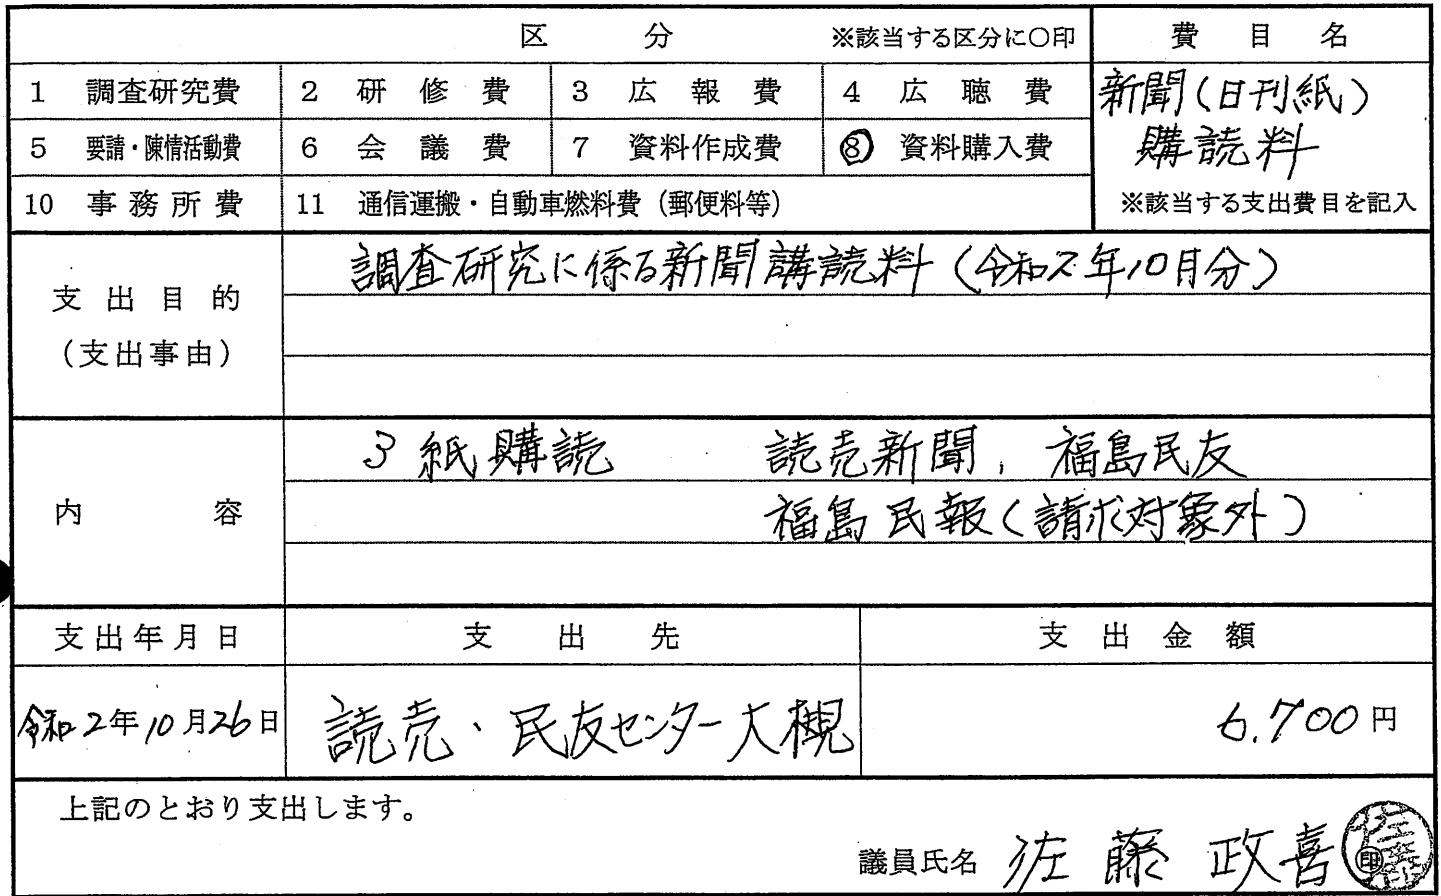 区 分 ※該当する区分に○印 費 目 名
1 調査研究費 2 研 修 費 3 広 報 費 4 広 聴 費 新聞(日刊紙)
5 要請・陳情活動費 6 会 議 費 7 資料作成費 ⑧ 資料購入費 購読料
10 事 務 所 費 11 通信運搬・自動車燃料費(郵便料等) ※該当する支出費目を記入
調査研究に係る新聞講読料(令和2年10月分)
支 出 目 的
(支出事由)
3紙購読 読売新聞, 福島民友
内 容 福島民報(請求対象外)
支出年月日 支 出 先 支 出 金 額
令和2年10月26日 読売・民友センター大槻 6.700円
上記のとおり支出します。
議員氏名 佐藤 政喜 ㊞